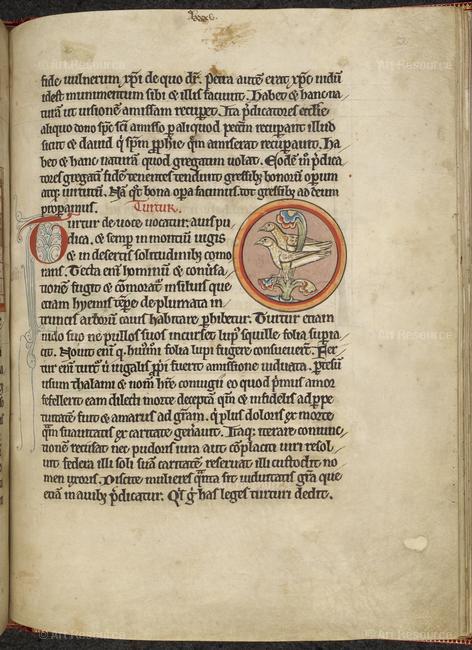 fide uulnerum xpi de quo dr. Petra autē erat xpc
idest munimentum sibi & illis faciunt. Habet & hanc na
turā ut uisionē amissam recupet. Ita pdicatores ecclie
aliquo dono spc sci amisso p aliquod peccm recuperant illud
sicut & dauid qi spm pphie qm amiserat recuperauit. Ha
bet & hanc naturā quod gregatim uolat. Eodē m pdica
tores gregati fidē tenentes tendunt gressibz bonorū operum
atqz uirtutū. Nā qt bona opa facimus tot gressibz ad deum
properamus. Turtur.
Turtur de uoce uocatur auis pu
dica & semp in montiū iugis
& in desertis solitudinibz como
rans. Tecta enī hominū & conuersa
tionē fugit & comoratur in siluis que
etiam hyemis tēpe deplumata in
truncis arborū cauis habitare phibetur. Turtur etiam
nido suo ne pullos suos incurset lupus squille folia supia
cit. Nouit enī q huiusmodi folia lupi fugere consueuerunt. Fer
tur enī turtur ubi iugalis pprii fuerit amissione uiduata. ptesū
usum thalami & nomen here coniugii eo quod primus amor
fefellerit eam dilecti morte decepta qm & infidelis ad ppe
tuitatē fuit & amarus ad gram. qi plus doloris ex morte
qm suauitatis ex caritate gen̄auit. Itaqz iterare coniunc
tionē recusat nec pudoris iura aut cōplaciti uiri resol
uit federa illi soli suā caritatē reseruat illi custodit no
men uxoris. Discite mulieres qnta sit uiduitatis gra que
etiā in auibz pdicatur. Qis g has leges turturi dedit.
© Art Resource
© Art Resource
Art Resource